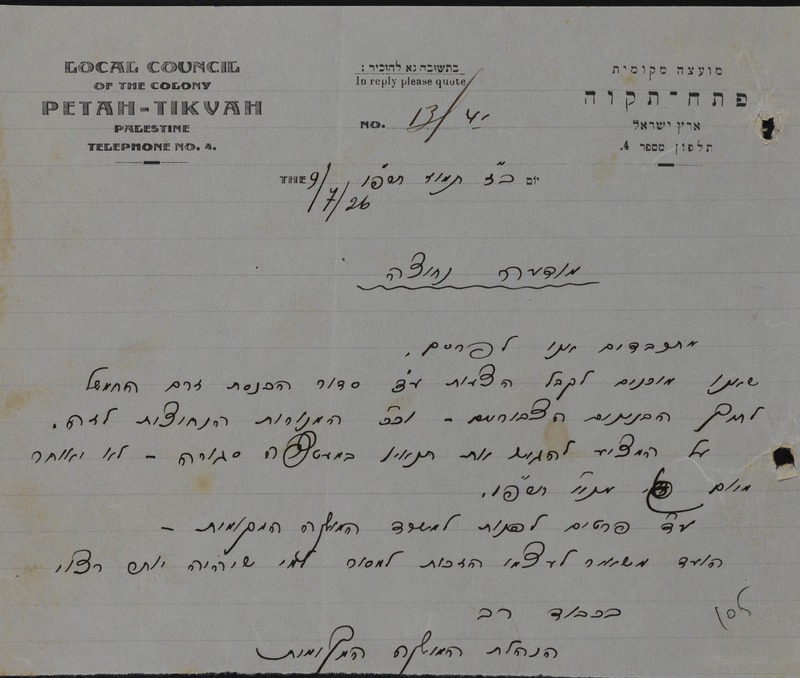 LOCAL COUNCIL
OF THE COLONY
PETAH-TIKVAH
PALESTINE
TELEPHONE NO. 4.
בתשובה נא להזכיר:
In reply please quote
NO. 13/41
מועצה מקומית
פתח־תקוה
ארץ ישראל
תלפון מספר 4.
THE 9/7/26 יום כ"ז תמוז רפ"ו
מודעה נחוצה
מתכבדים אנו לפרסם.
שאנו מוכנים לקבל הצעות ע"ד סדור הכנסת זרם החשמל
הבנינים הצבורים – וכ"כ המנורות הנחוצות לזה.
על המציע להגיש את תנאיו במעטפה סגורה – לא יאוחר
מיום
ע"ד פרטים לפנות למשרד המועצה המקומית –
הועד משאיר לעצמו הזכות למסור למי שיהיה יותר רצוי
בכבוד רב
הנהלת המועצה המקומית